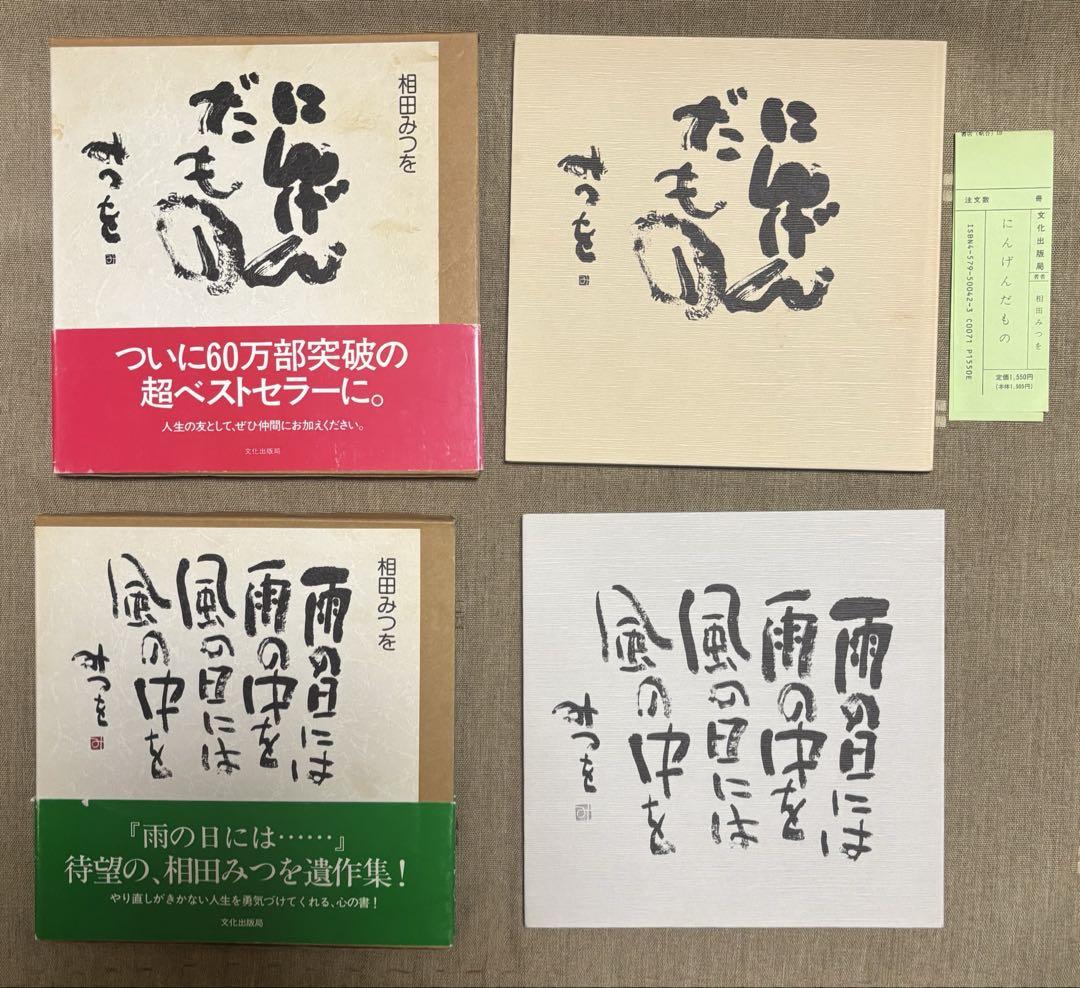 相田みつを
にんげん
だもの
みつを
ついに60万部突破の
超ベストセラーに。
人生の友として、ぜひ仲間にお加えください。
文化出版局
にんげん
だもの
みつを
注文数
冊
文化出版局
著者
相田みつを
にんげんだもの
ISBN4-579-50042-3 C0071 P1550E
定価1,550円
(本体1,505円)
相田みつを
雨の日には
雨の中を
風の日には
風の中を
みつを
『雨の日には……』
待望の、相田みつを遺作集!
やり直しがきかない人生を勇気づけてくれる、心の書!
文化出版局
雨の日には
雨の中を
風の日には
風の中を
みつを